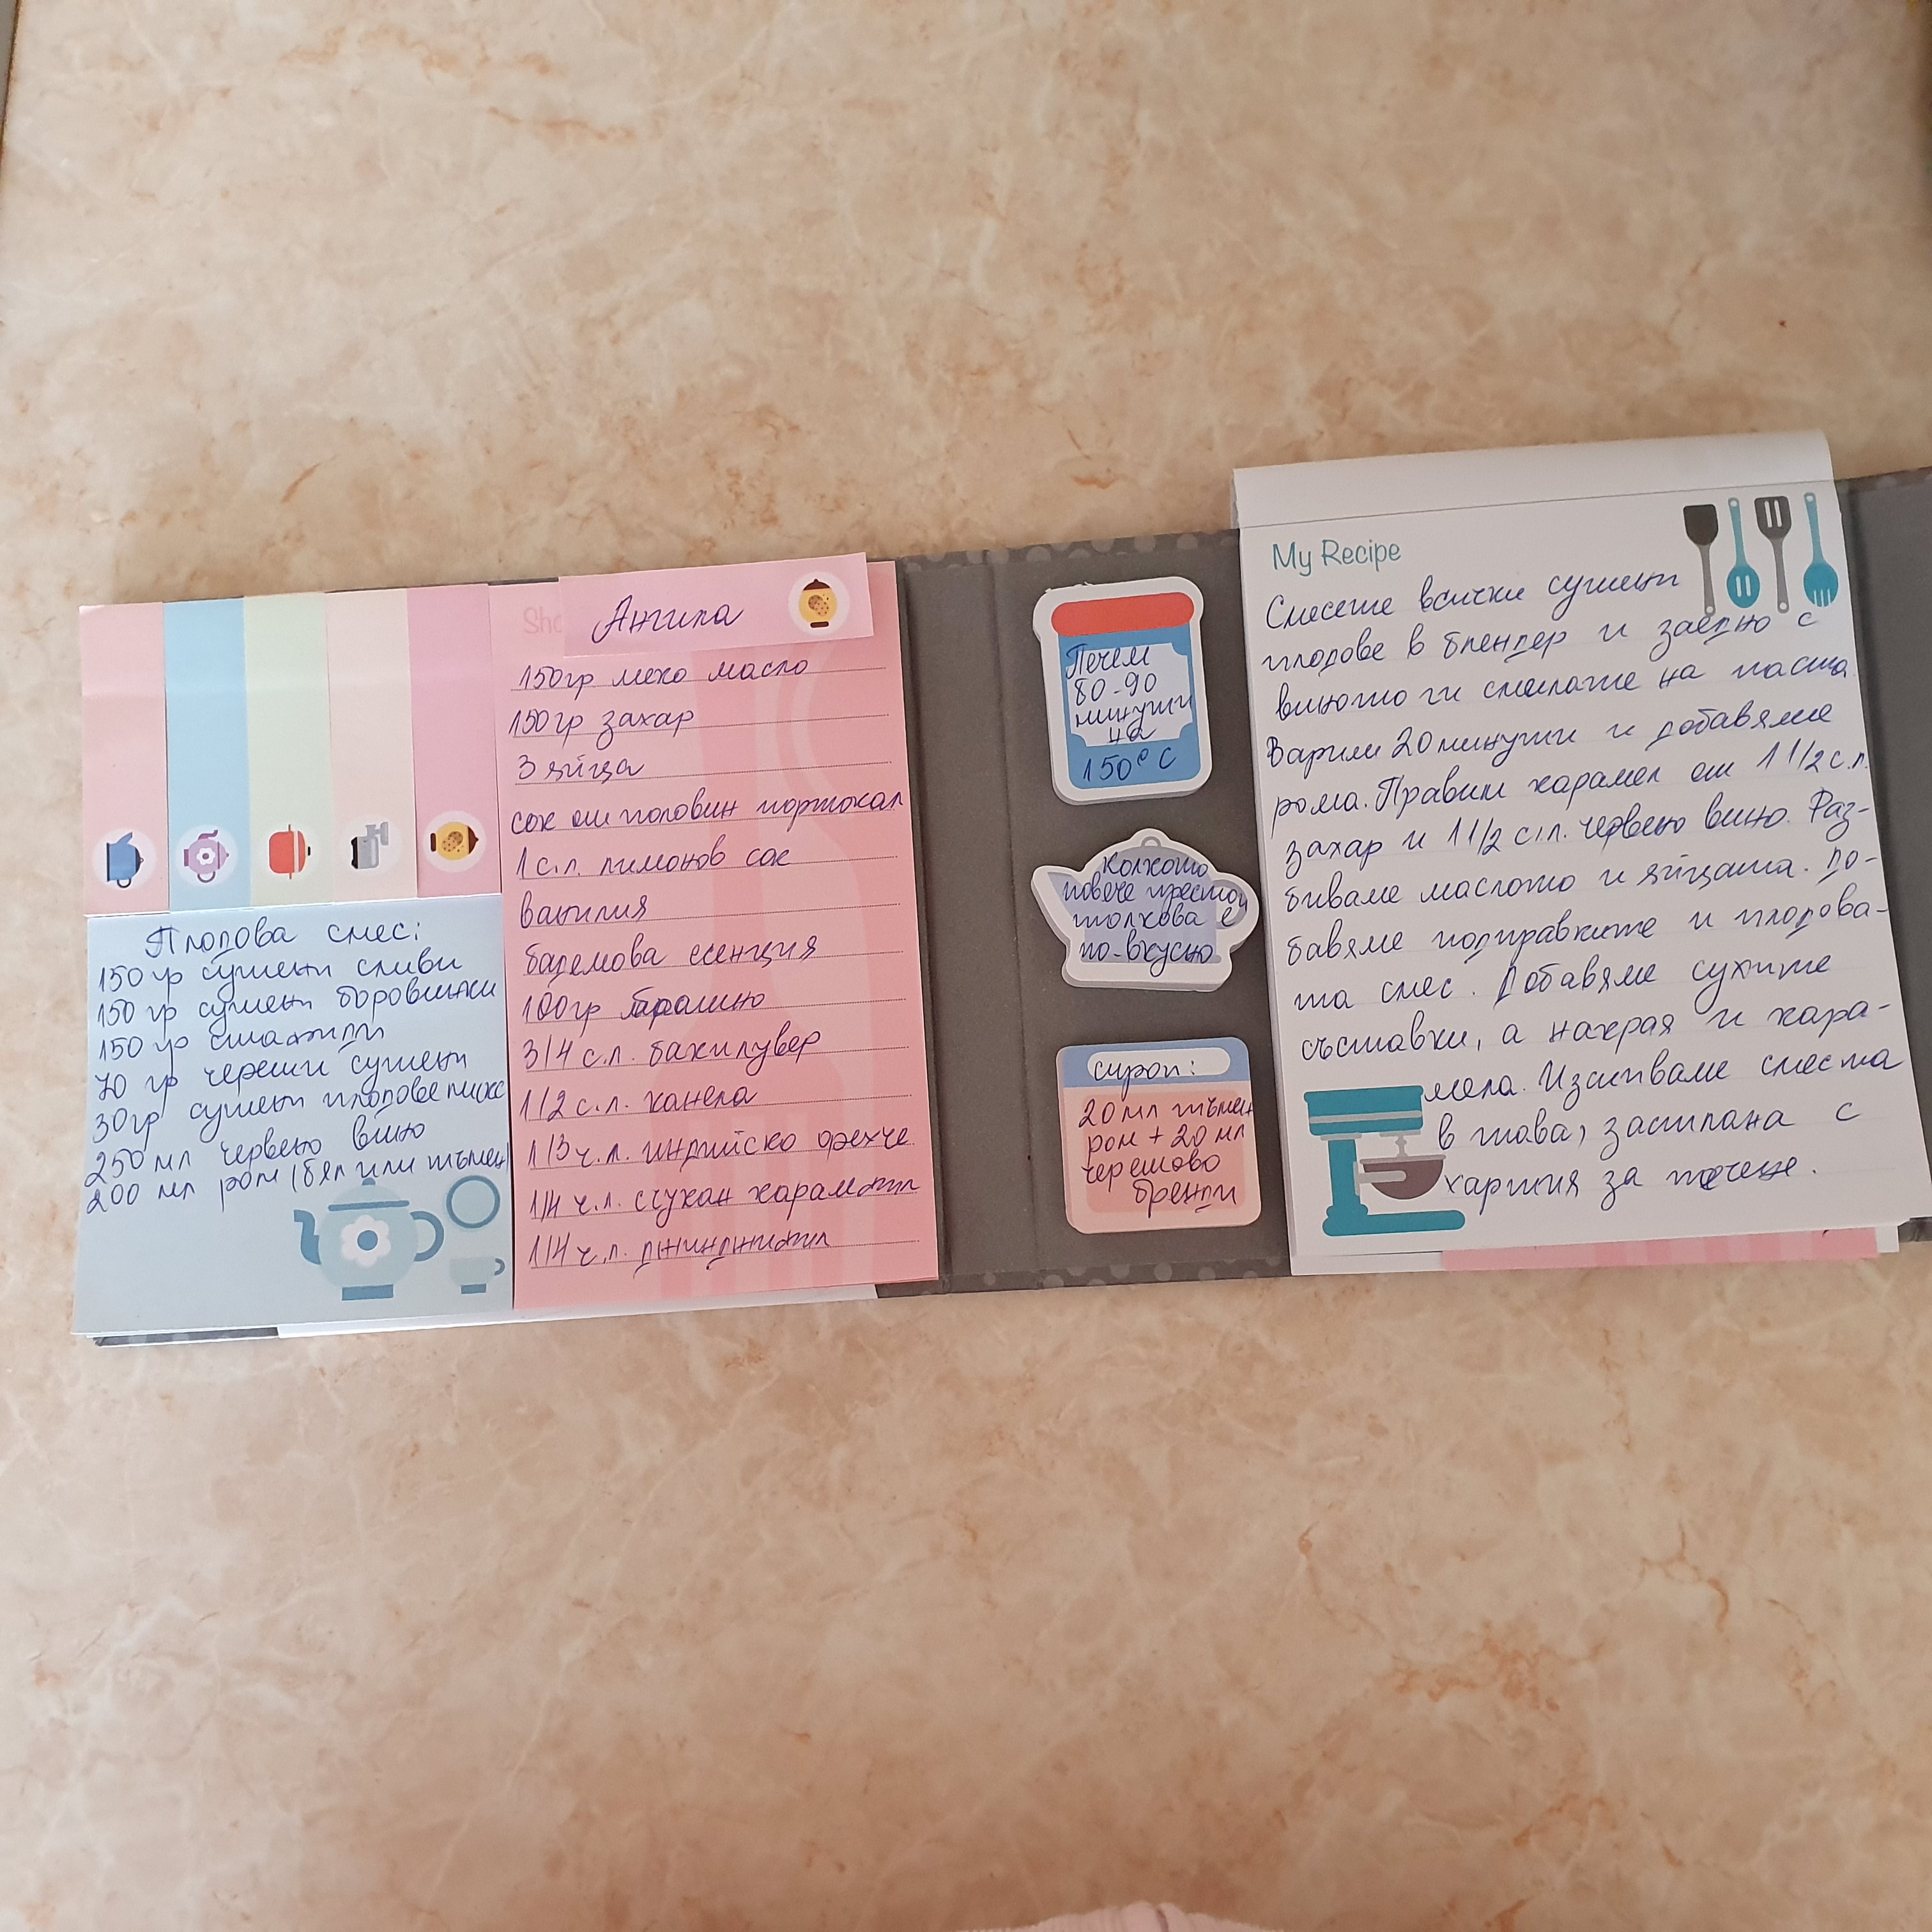 Плодова смес:
150 гр сушени сливи
150 гр сушени боровинки
150 гр стафиди
70 гр череши сушени
30гр сушени плодове микс
250 мл червено вино
200 мл ром (бял или тъмен)
Sho
Ангила
150гр меко масло
150гр захар
3 яйца
сок от половин портокал
1 с.л. лимонов сок
ванилия
бадемова есенция
100гр брашно
3/4 с.л. бакпулвер
1/2 с.л. канела
1/3 ч.л. индийско орехче
1/4 ч.л. счукан карамфил
1/4 ч.л. джинджифил
Печем
80-90
минути
на
150° C
Колкото
повече престои
толкова е
по-вкусно
сироп:
20 мл тъмен
ром + 20 мл
черешово
бренди
My Recipe
Смесете всички сушени
плодове в блендер и заедно с
виното ги смелате на паста.
Варим 20 минути и добавяме
рома. Правим карамел от 1 1/2 с.л.
захар и 1 1/2 с.л. червено вино. Раз-
биваме маслото и яйцата. До-
бавяме подправките и плодова-
та смес. Добавяме сухите
съставки, а накрая и кара-
мела. Изсипваме сместа
в тава, застлана с
хартия за печене.